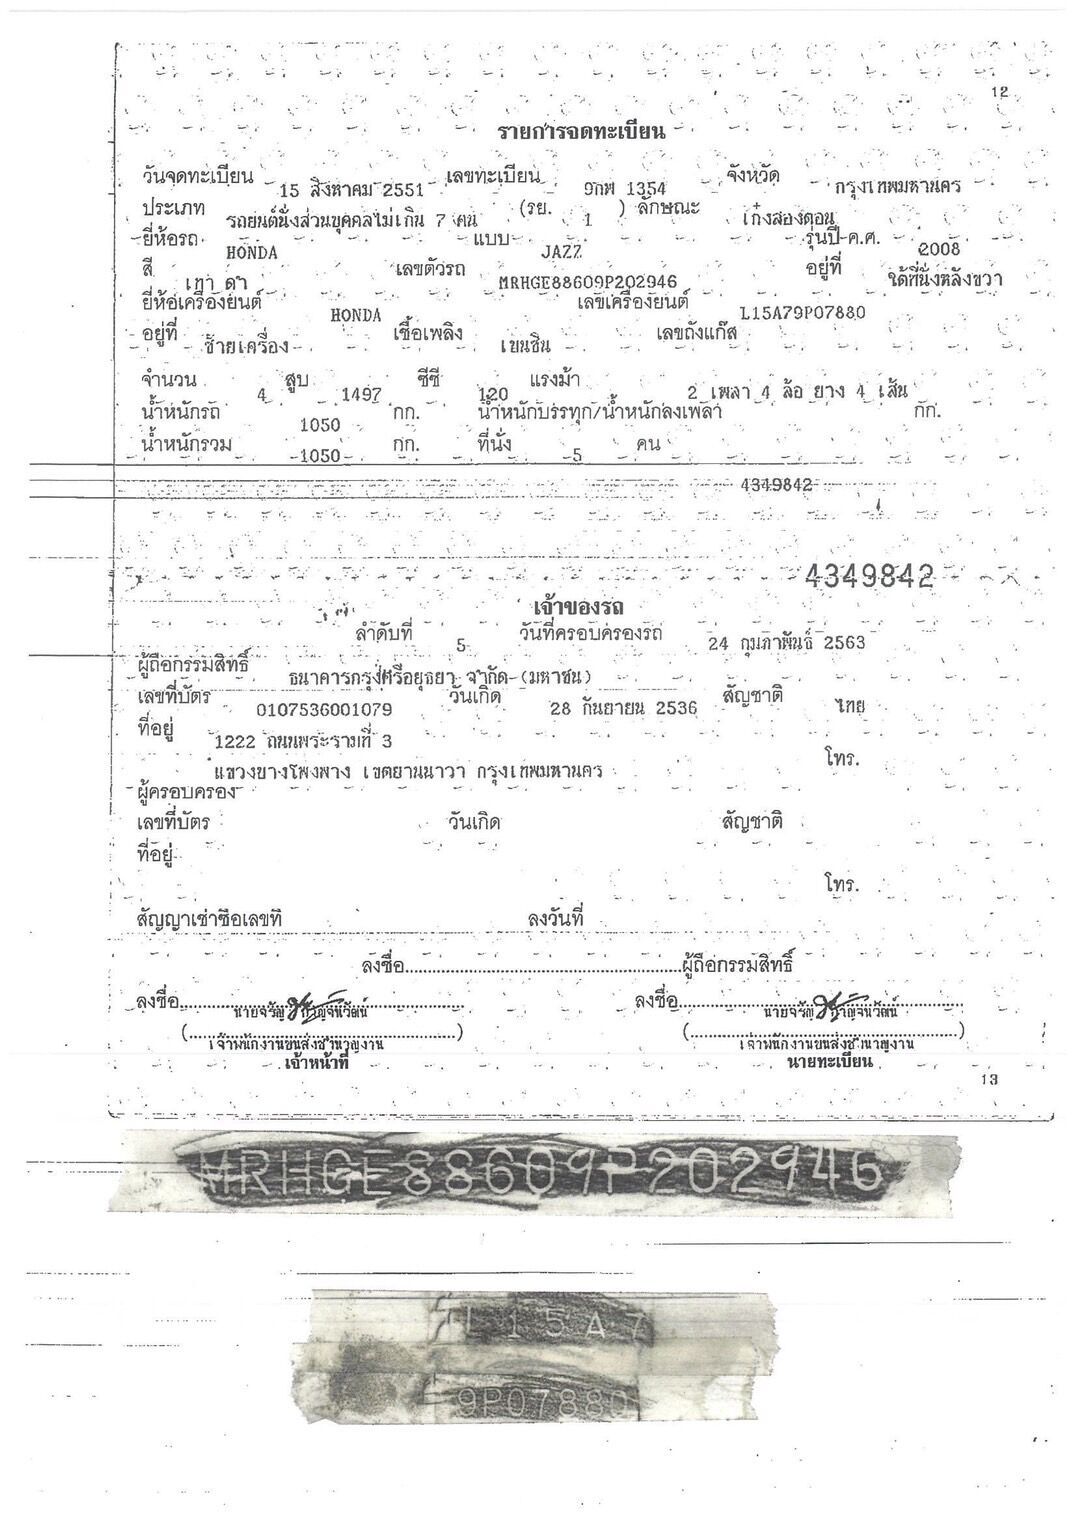 12
รายการจดทะเบียน
วันจดทะเบียน 15 สิงหาคม 2551 เลขทะเบียน 9กพ 1354 จังหวัด กรุงเทพมหานคร
ประเภท รถยนต์นั่งส่วนบุคคลไม่เกิน 7 คน (รย. 1 ) ลักษณะ เก๋งสองตอน
ยี่ห้อรถ HONDA แบบ JAZZ รุ่นปี ค.ศ. 2008
สี เทา ดำ เลขตัวรถ MRHGE88609P202946 อยู่ที่ ใต้ที่นั่งหลังขวา
ยี่ห้อเครื่องยนต์ HONDA เลขเครื่องยนต์ L15A79P07880
อยู่ที่ ซ้ายเครื่อง เชื้อเพลิง เบนซิน เลขถังแก๊ส
จำนวน 4 สูบ 1497 ซีซี 120 แรงม้า 2 เพลา 4 ล้อ ยาง 4 เส้น
น้ำหนักรถ 1050 กก. น้ำหนักบรรทุก/น้ำหนักลงเพลา กก.
น้ำหนักรวม 1050 กก. ที่นั่ง 5 คน
4349842
4349842
เจ้าของรถ
ลำดับที่ 5 วันที่ครอบครองรถ 24 กุมภาพันธ์ 2563
ผู้ถือกรรมสิทธิ์ ธนาคารกรุงศรีอยุธยา จำกัด (มหาชน)
เลขที่บัตร 0107536001079 วันเกิด 28 กันยายน 2536 สัญชาติ ไทย
ที่อยู่ 1222 ถนนพระรามที่ 3
โทร.
แขวงบางโพงพาง เขตยานนาวา กรุงเทพมหานคร
ผู้ครอบครอง
เลขที่บัตร วันเกิด สัญชาติ
ที่อยู่
โทร.
สัญญาเช่าซื้อเลขที่ ลงวันที่
ลงชื่อ..............................ผู้ถือกรรมสิทธิ์
ลงชื่อ.............................. ลงชื่อ..............................
นายจรัญ กาญจนวัฒน์ นายจรัญ กาญจนวัฒน์
(..............................) (..............................)
เจ้าพนักงานขนส่งชำนาญงาน เจ้าพนักงานขนส่งชำนาญงาน
เจ้าหน้าที่ นายทะเบียน
13
MRHGE88609P202946
L15A7
9P07880